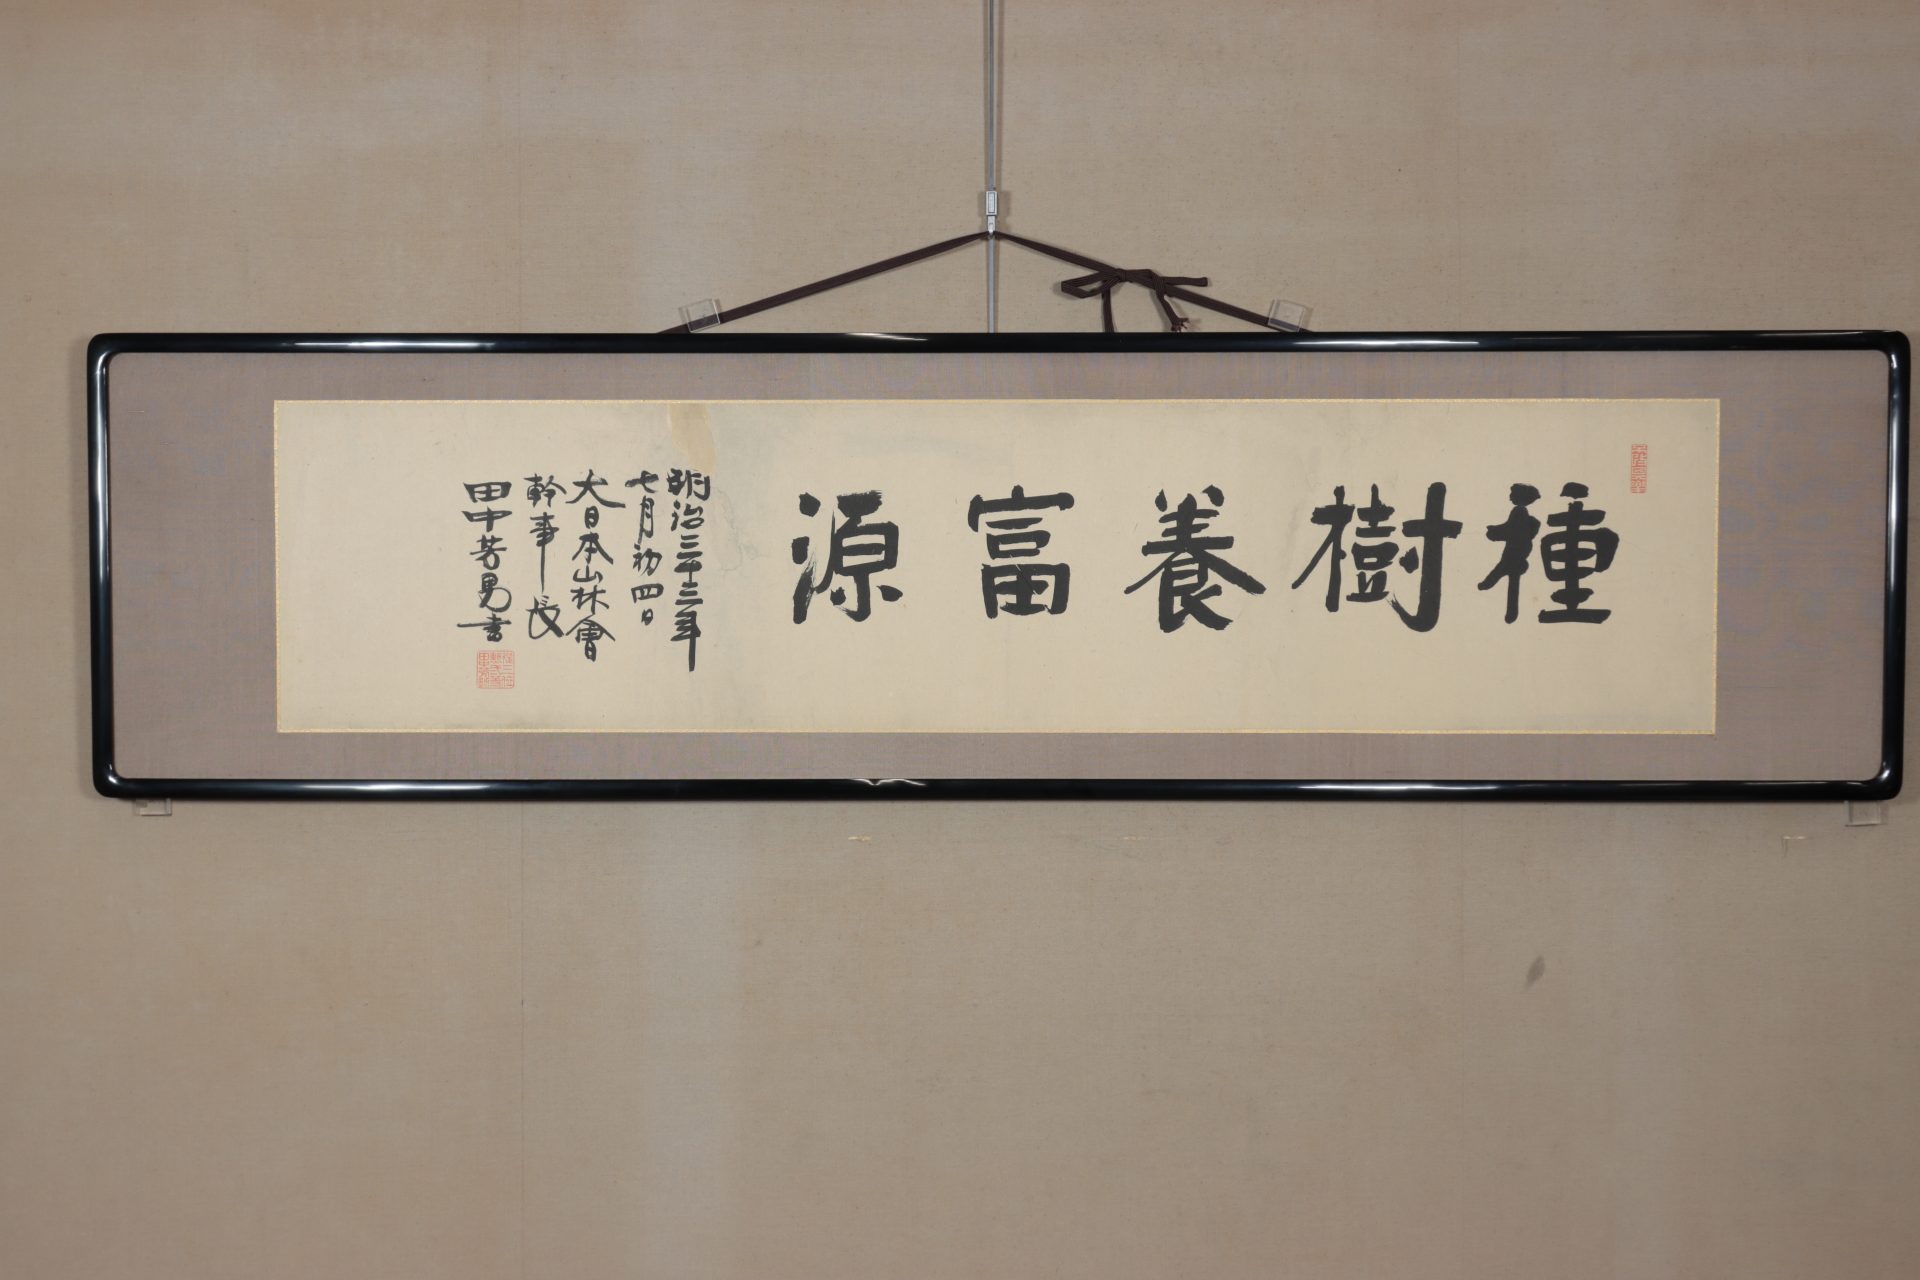 種樹養富源
明治三十三年
七月初四日
大日本山林會
幹事長
田中芳男書